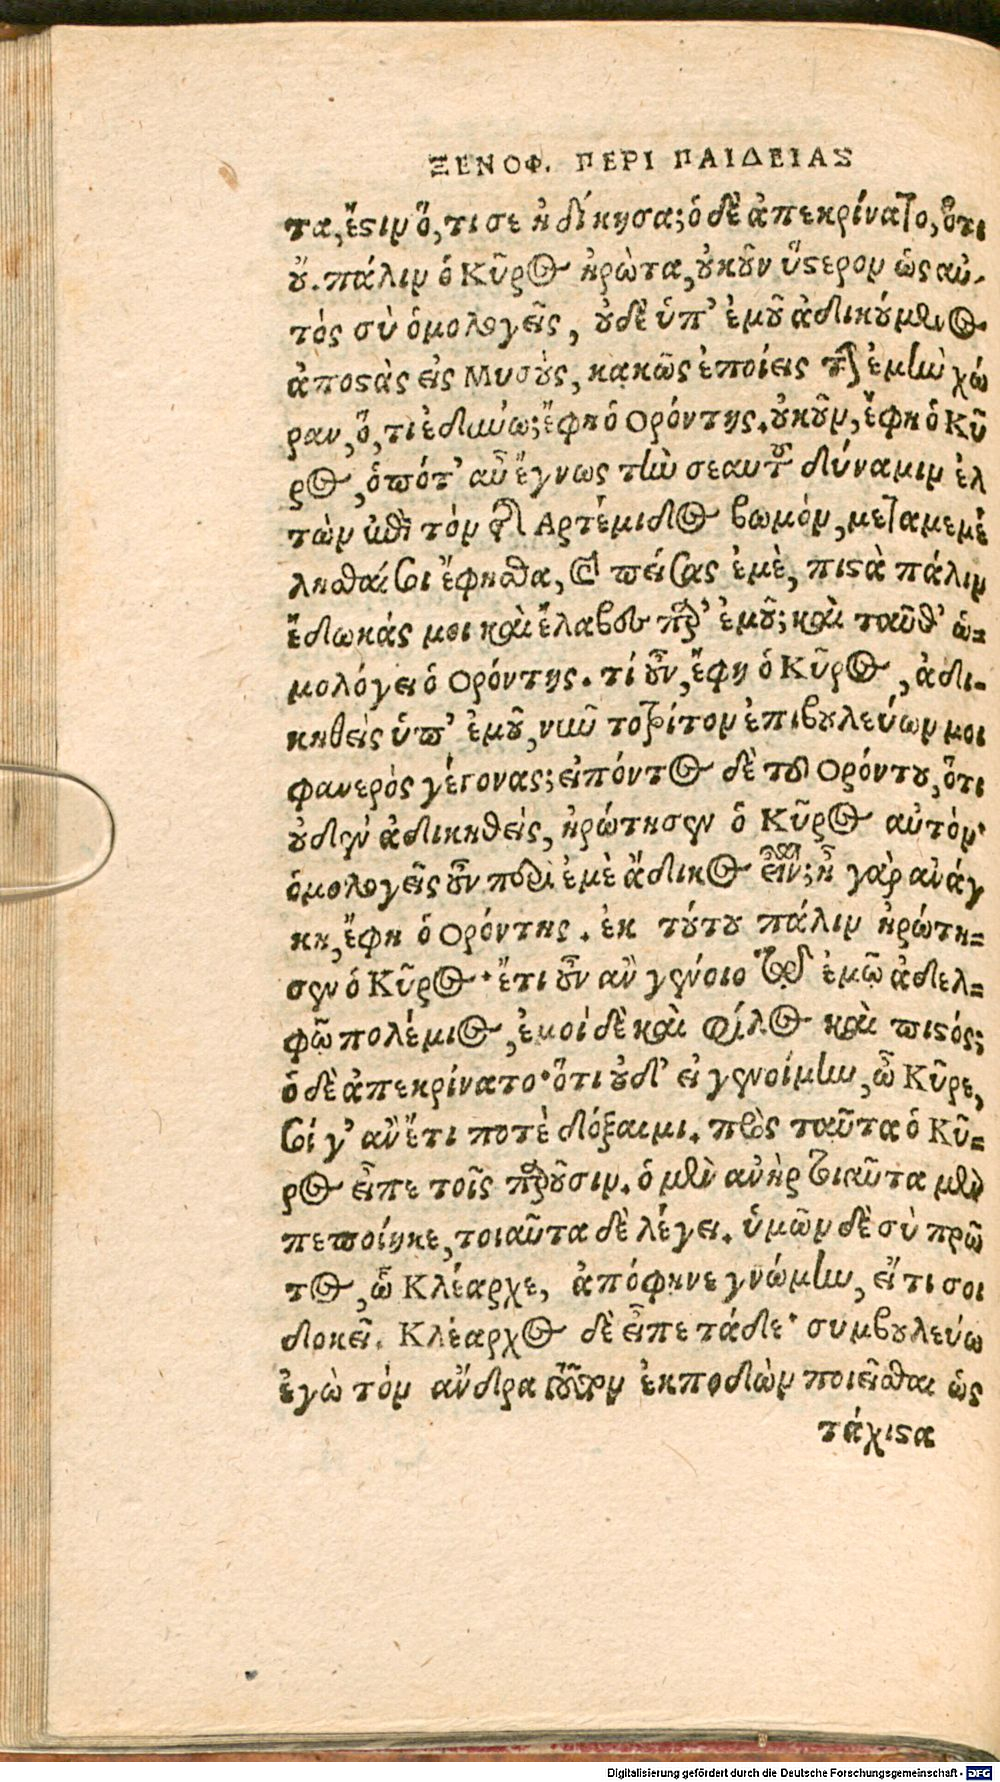 ΞΕΝΟΦ. ΠΕΡΙ ΠΑΙΔΕΙΑΣ
τα, ἔστιν ὅ, τι σε ἠδίκησα; ὁ δὲ ἀπεκρίνατο, ὅτι
οὔ. πάλιν ὁ Κῦρος ἠρώτα, οὐκοῦν ὕστερον ὡς αὐ-
τὸς σὺ ὁμολογεῖς, οὐδὲ ὑπ' ἐμοῦ ἀδικούμενος
ἀποστὰς εἰς Μυσοὺς, κακῶς ἐποίεις τὴν ἐμὴν χώ
ραν, ὅ, τι ἐδύνω; ἔφη ὁ Ορόντης. οὐκοῦν, ἔφη ὁ Κῦ
ρος, ὁπότ' αὖ ἔγνως τὴν σεαυτοῦ δύναμιν ἐλ
τὼν ἐπὶ τὸν τῆς Αρτέμιδος βωμὸν, μεταμεμέ
λησθαί σοι ἔφησθα, καὶ πείσας ἐμὲ, πιστὰ πάλιν
ἔδωκάς μοι καὶ ἔλαβες παρ' ἐμοῦ; καὶ ταῦθ' ὡ=
μολόγει ὁ Ορόντης. τί οὖν, ἔφη ὁ Κῦρος, ἀδι-
κηθεὶς ὑπ' ἐμοῦ, νῦν τοτρίτον ἐπιβουλεύων μοι
φανερὸς γέγονας; εἰπόντος δὲ τοῦ Ορόντου, ὅτι
οὐδὲν ἀδικηθεὶς, ἠρώτησεν ὁ Κῦρος αὐτόν·
ὁμολογεῖς οὖν περὶ ἐμὲ ἄδικος εἶναι; ἦ γὰρ ἀνάγ
κη, ἔφη ὁ Ορόντης. ἐκ τούτου πάλιν ἠρώτη=
σεν ὁ Κῦρος· ἔτι οὖν ἂν γένοιο τῷ ἐμῶ ἀδελ=
φῶ πολέμιος, ἐμοὶ δὲ καὶ φίλος καὶ πιστός;
ὁ δὲ ἀπεκρίνατο· ὅτι οὐδ' εἰ γενοίμην, ὦ Κῦρε,
σοί γ' ἂν ἔτι ποτὲ δόξαιμι. πρὸς ταῦτα ὁ Κῦ=
ρος εἶπε τοῖς παροῦσιν. ὁ μὲν ἀνὴρ τοιαῦτα μὲν
πεποίηκε, τοιαῦτα δὲ λέγει. ὑμῶν δὲ σὺ πρῶ
τος, ὦ Κλέαρχε, ἀπόφηνε γνώμην, εἴ τι σοι
δοκεῖ. Κλέαρχος δὲ εἶπε τάδε· συμβουλεύω
ἐγὼ τὸν ἄνδρα τοῦτον ἐκποδὼν ποιεῖσθαι ὡς
τάχιστα
Digitalisierung gefördert durch die Deutsche Forschungsgemeinschaft - DFG